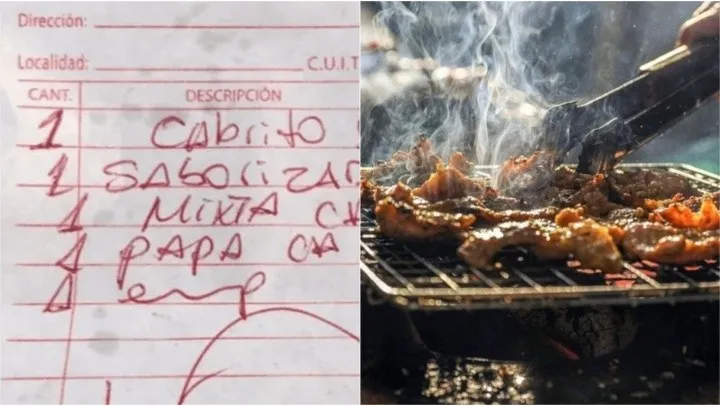 Dirección:
Localidad: C.U.I.T
CANT. DESCRIPCIÓN
1 CAbrito
1 SAborizAd
1 MIXTA CH
1 PAPA CH
1 emp